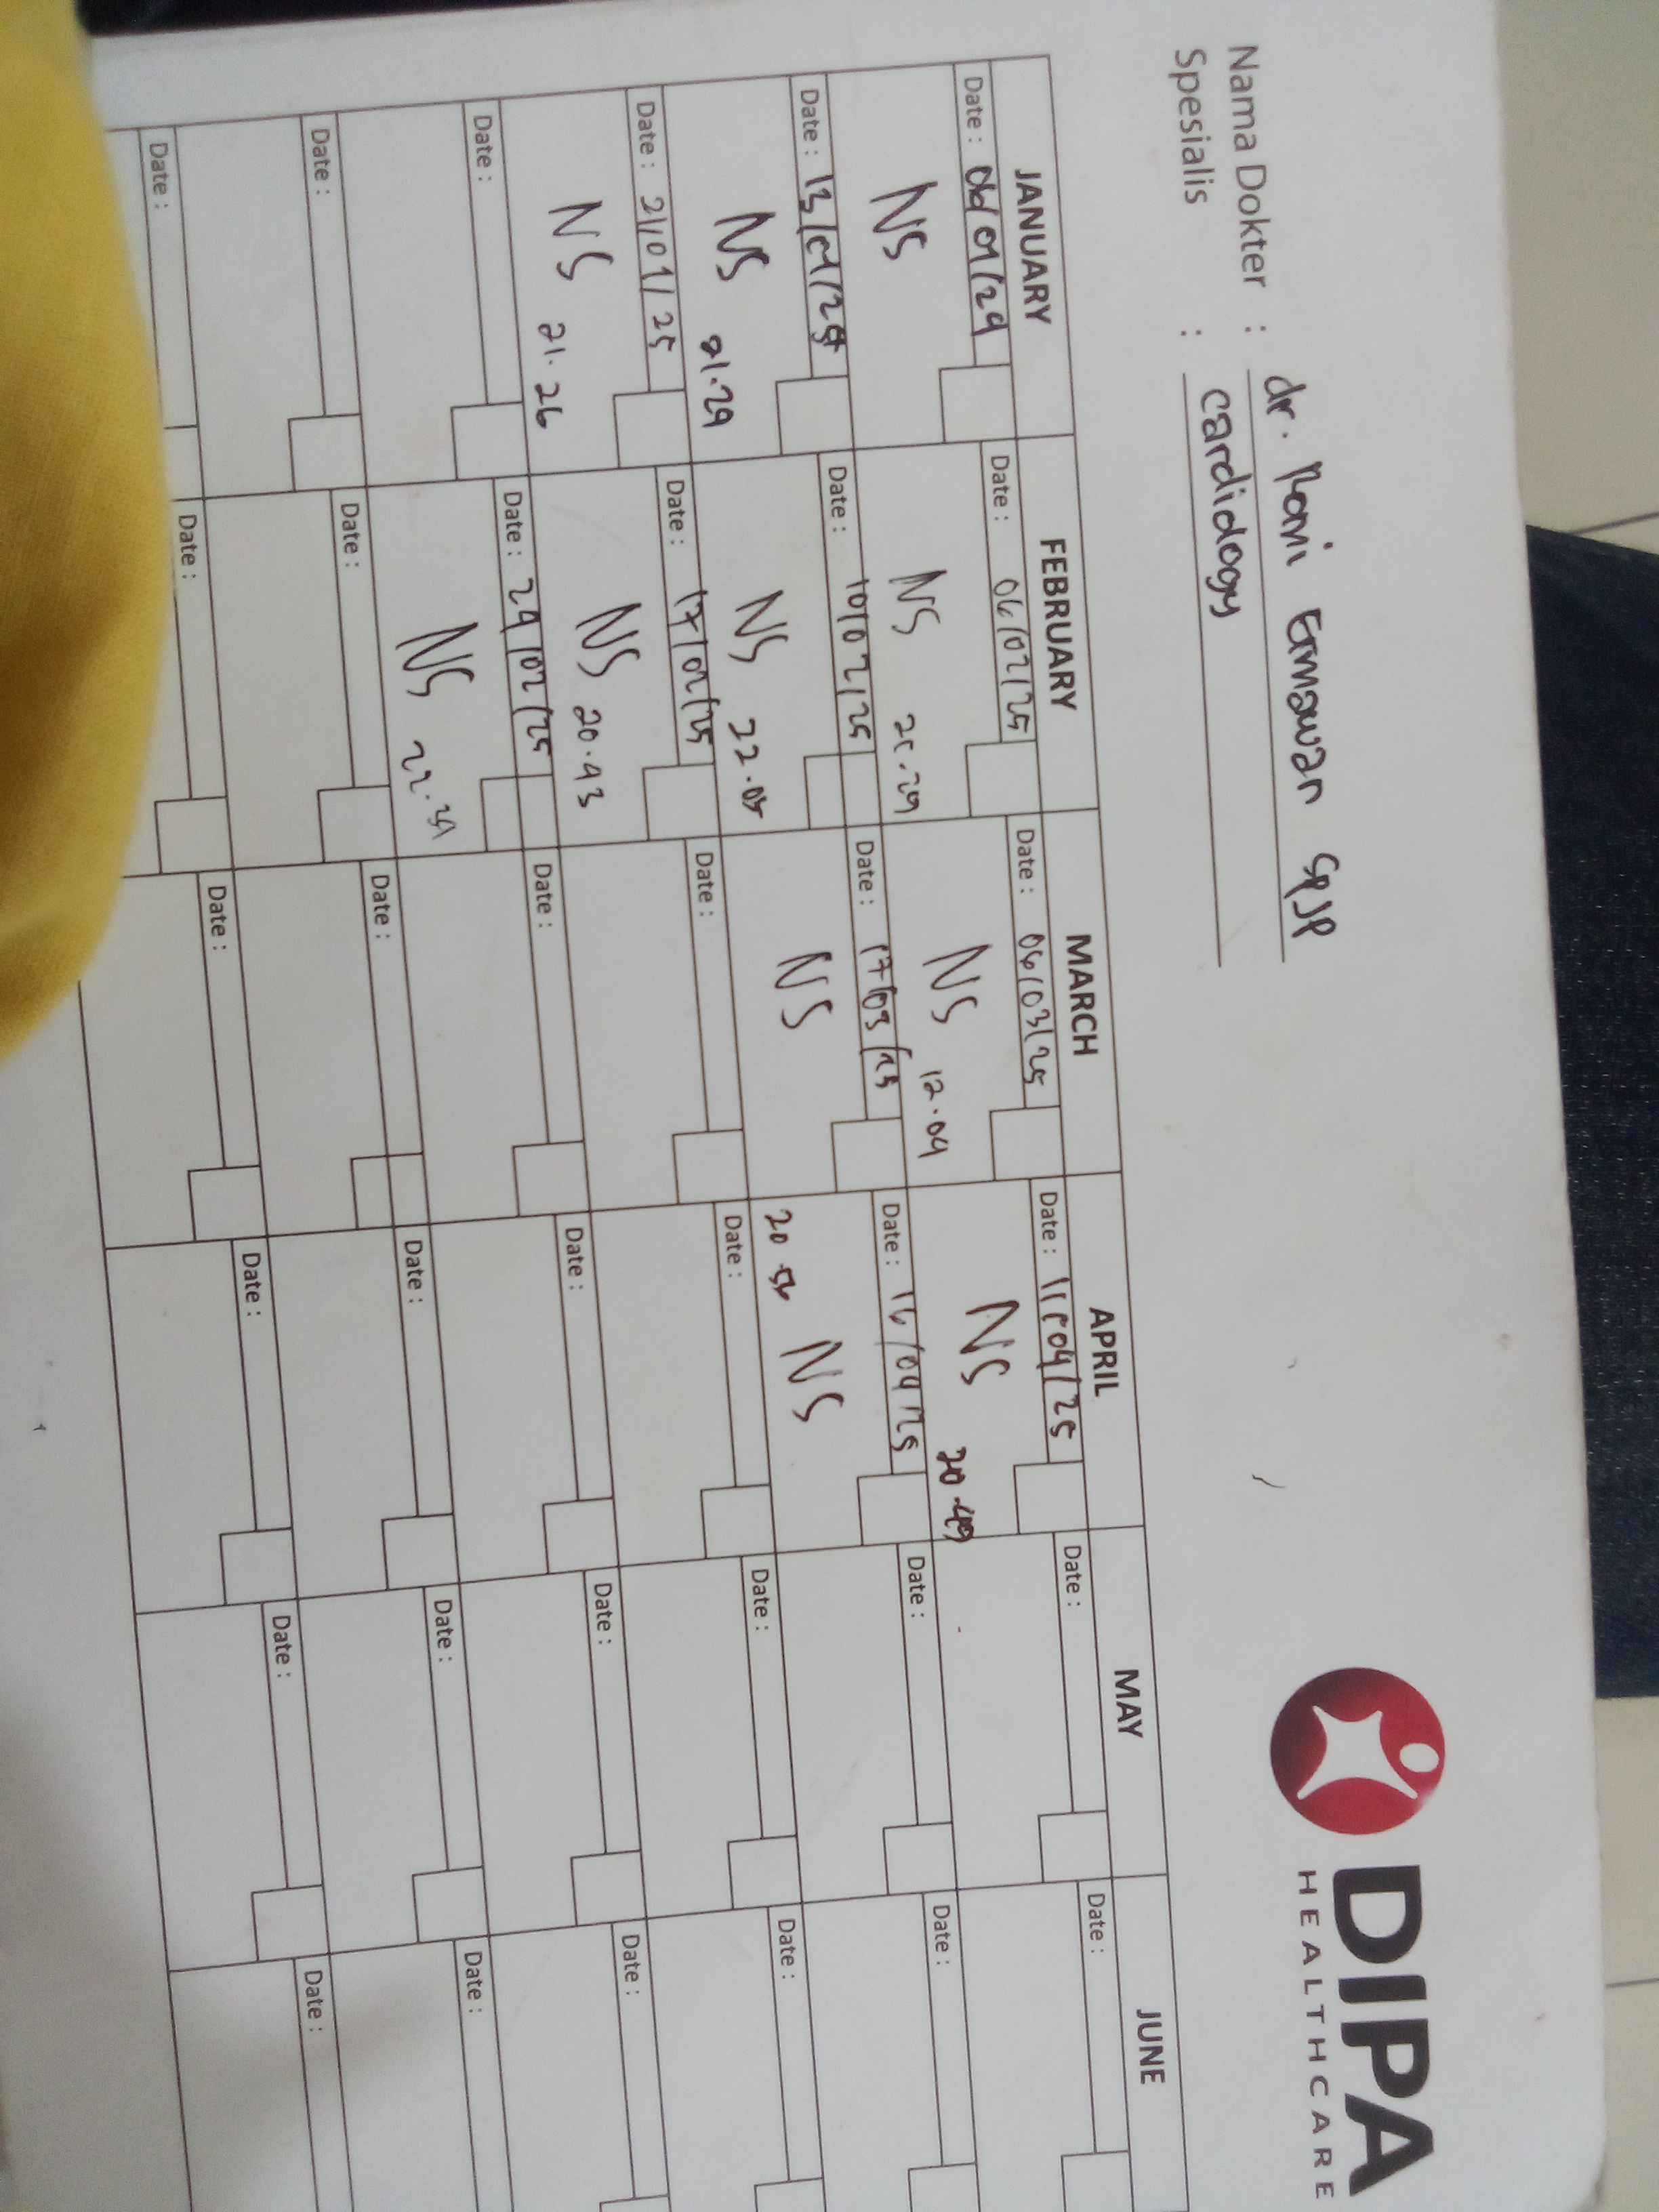 Nama Dokter : dr. Roni Ermawan SpJP
Spesialis : cardiology
DIPA
HEALTHCARE
JANUARY FEBRUARY MARCH APRIL MAY JUNE
Date : 06/01/24 Date : 06/02/25 Date : 06/03/25 Date : 11/04/25 Date : Date :
NS NS NS 12.04 NS 20.49
Date : 13/01/25 Date : 10/02/25 Date : 17/03/25 Date : 16/04/25 Date : Date :
NS 21.29 NS 22.05 NS 20.56 NS
Date : 21/01/25 Date : 17/02/25 Date : Date : Date : Date :
NS 21.26 NS 20.43
Date : Date : 24/02/25 Date : Date : Date : Date :
NS
Date : Date : Date : Date : Date : Date :
Date : Date : Date : Date : Date : Date :